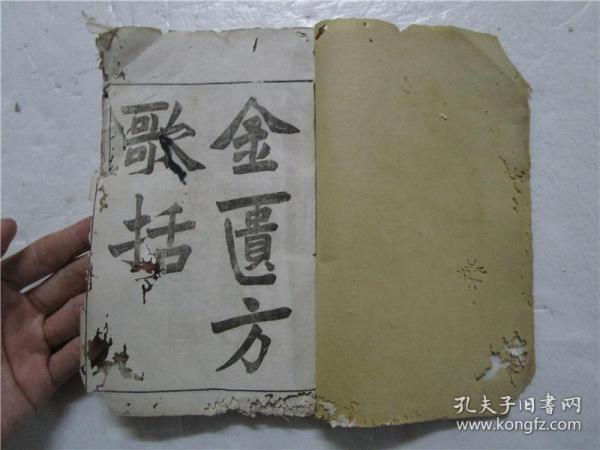 金匱方
歌括
孔夫子旧書网
www.kongfz.com